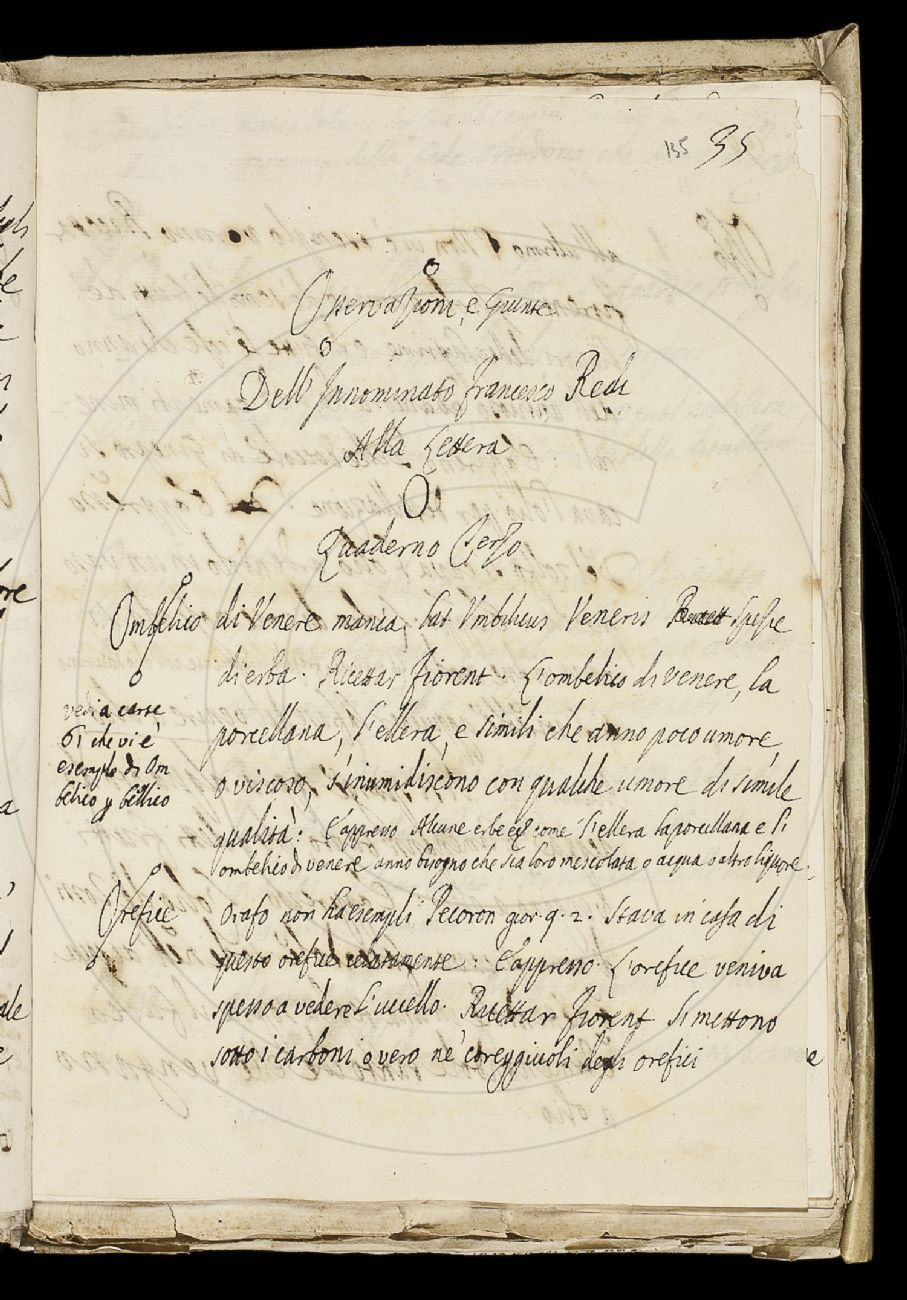 135 35
Osservazioni, e Giunte
Dell' Innominato Francesco Redi
Alla Lettera
O
Quaderno Terzo
Ombelico di Venere manca, lat Vmbilicus Veneris spezie
di erba. Ricettar Fiorent. L'ombelico di venere, la
porcellana, l'ellera, e simili che anno poco umore,
o viscoso, s'inumidiscono con qualche umore di simile
qualità: E appresso Alcune erbe come l'ellera la porcellana e l'
ombelico di venere anno bisogno che sia loro mescolata o acqua o altro liquore.
vedi a carte
61 che vi è
esempio di Om
belico p bellico
Orefice orafo non ha esempli Pecoron gior. 9. 2. stava in casa di
questo orefice celatamente: E appresso. L'orefice veniva
spesso a vedere l'uccello. Ricettar Fiorent Si mettono
sotto i carboni o vero ne' coreggiuoli degli orefici